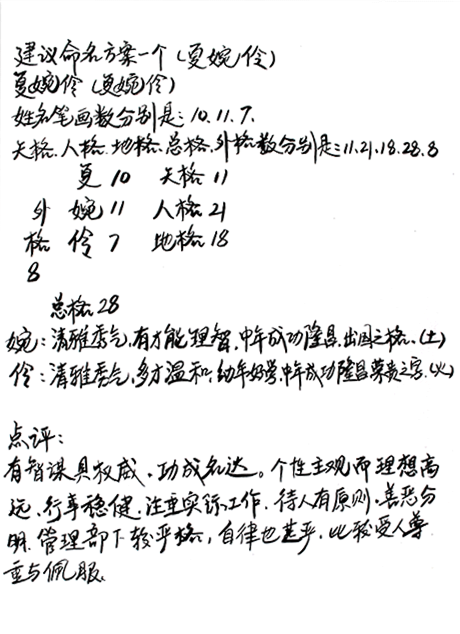 建议命名方案一个(夏婉伶)
夏婉伶(夏婉伶)
姓名笔画数分别是:10.11.7.
天格.人格.地格.总格.外格数分别是:11.21.18.28.8
夏 10 天格 11
外 婉 11 人格 21
格 伶 7 地格 18
8
总格 28
婉:清雅秀气,有才能理智.中年成功隆昌,出国之格.(土)
伶:清雅秀气,多才温和,幼年好学,中年成功隆昌荣贵之字.(火)
点评:
有智谋具权威.功成名达。个性主观而理想高
远.行事稳健.注重实际工作.待人有原则.善恶分
明.管理部下较严格,自律也甚严.比较受人尊
重与佩服.